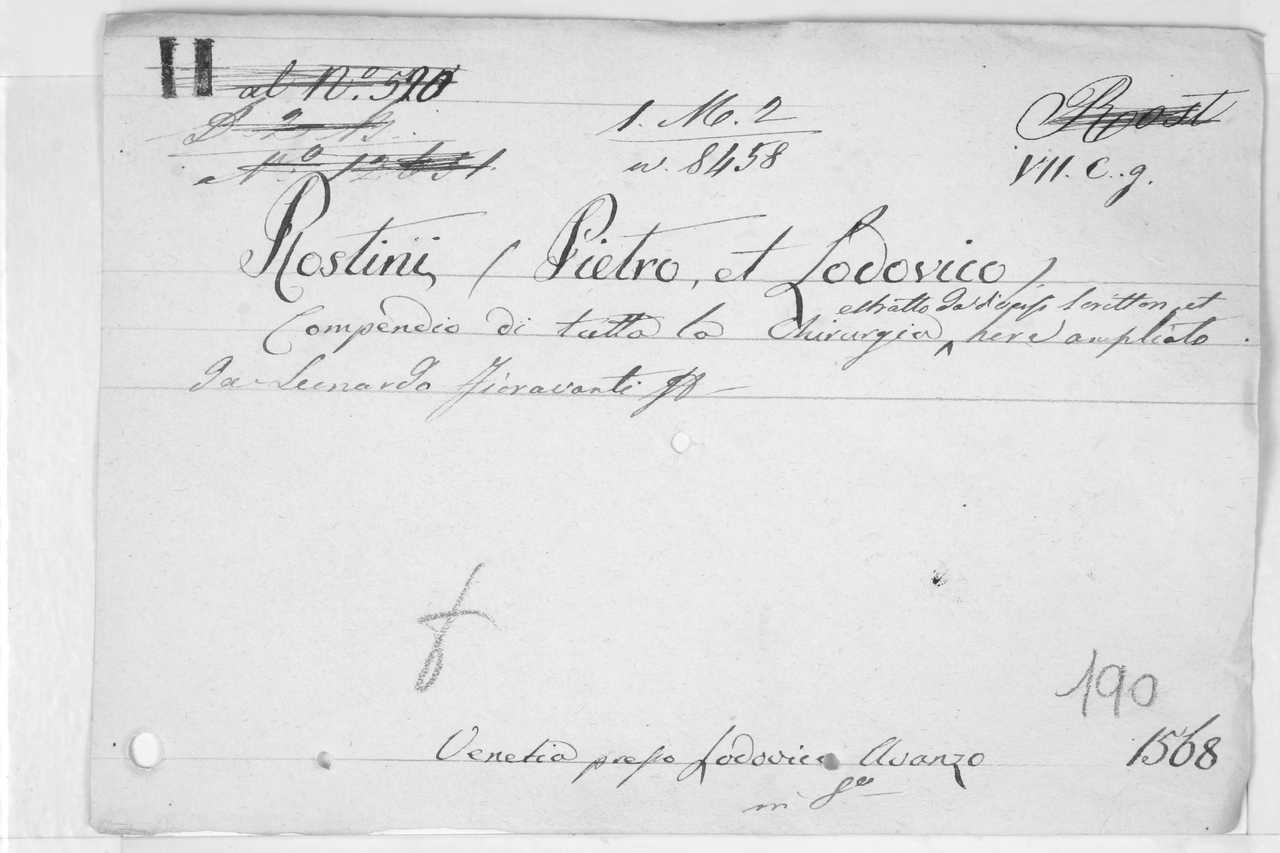 II al N.º 520
1. M. 2
Rost
w. 8458
VII. C. g.
Rostini, (Pietro, et Lodovico)
estratto da diversi Scrittori, et
Compendio di tutta la Chirurgia, here ampliato
da Leonardo Fioravanti
190
Venetia presso Lodovico Avanzo
1568
in 8vo